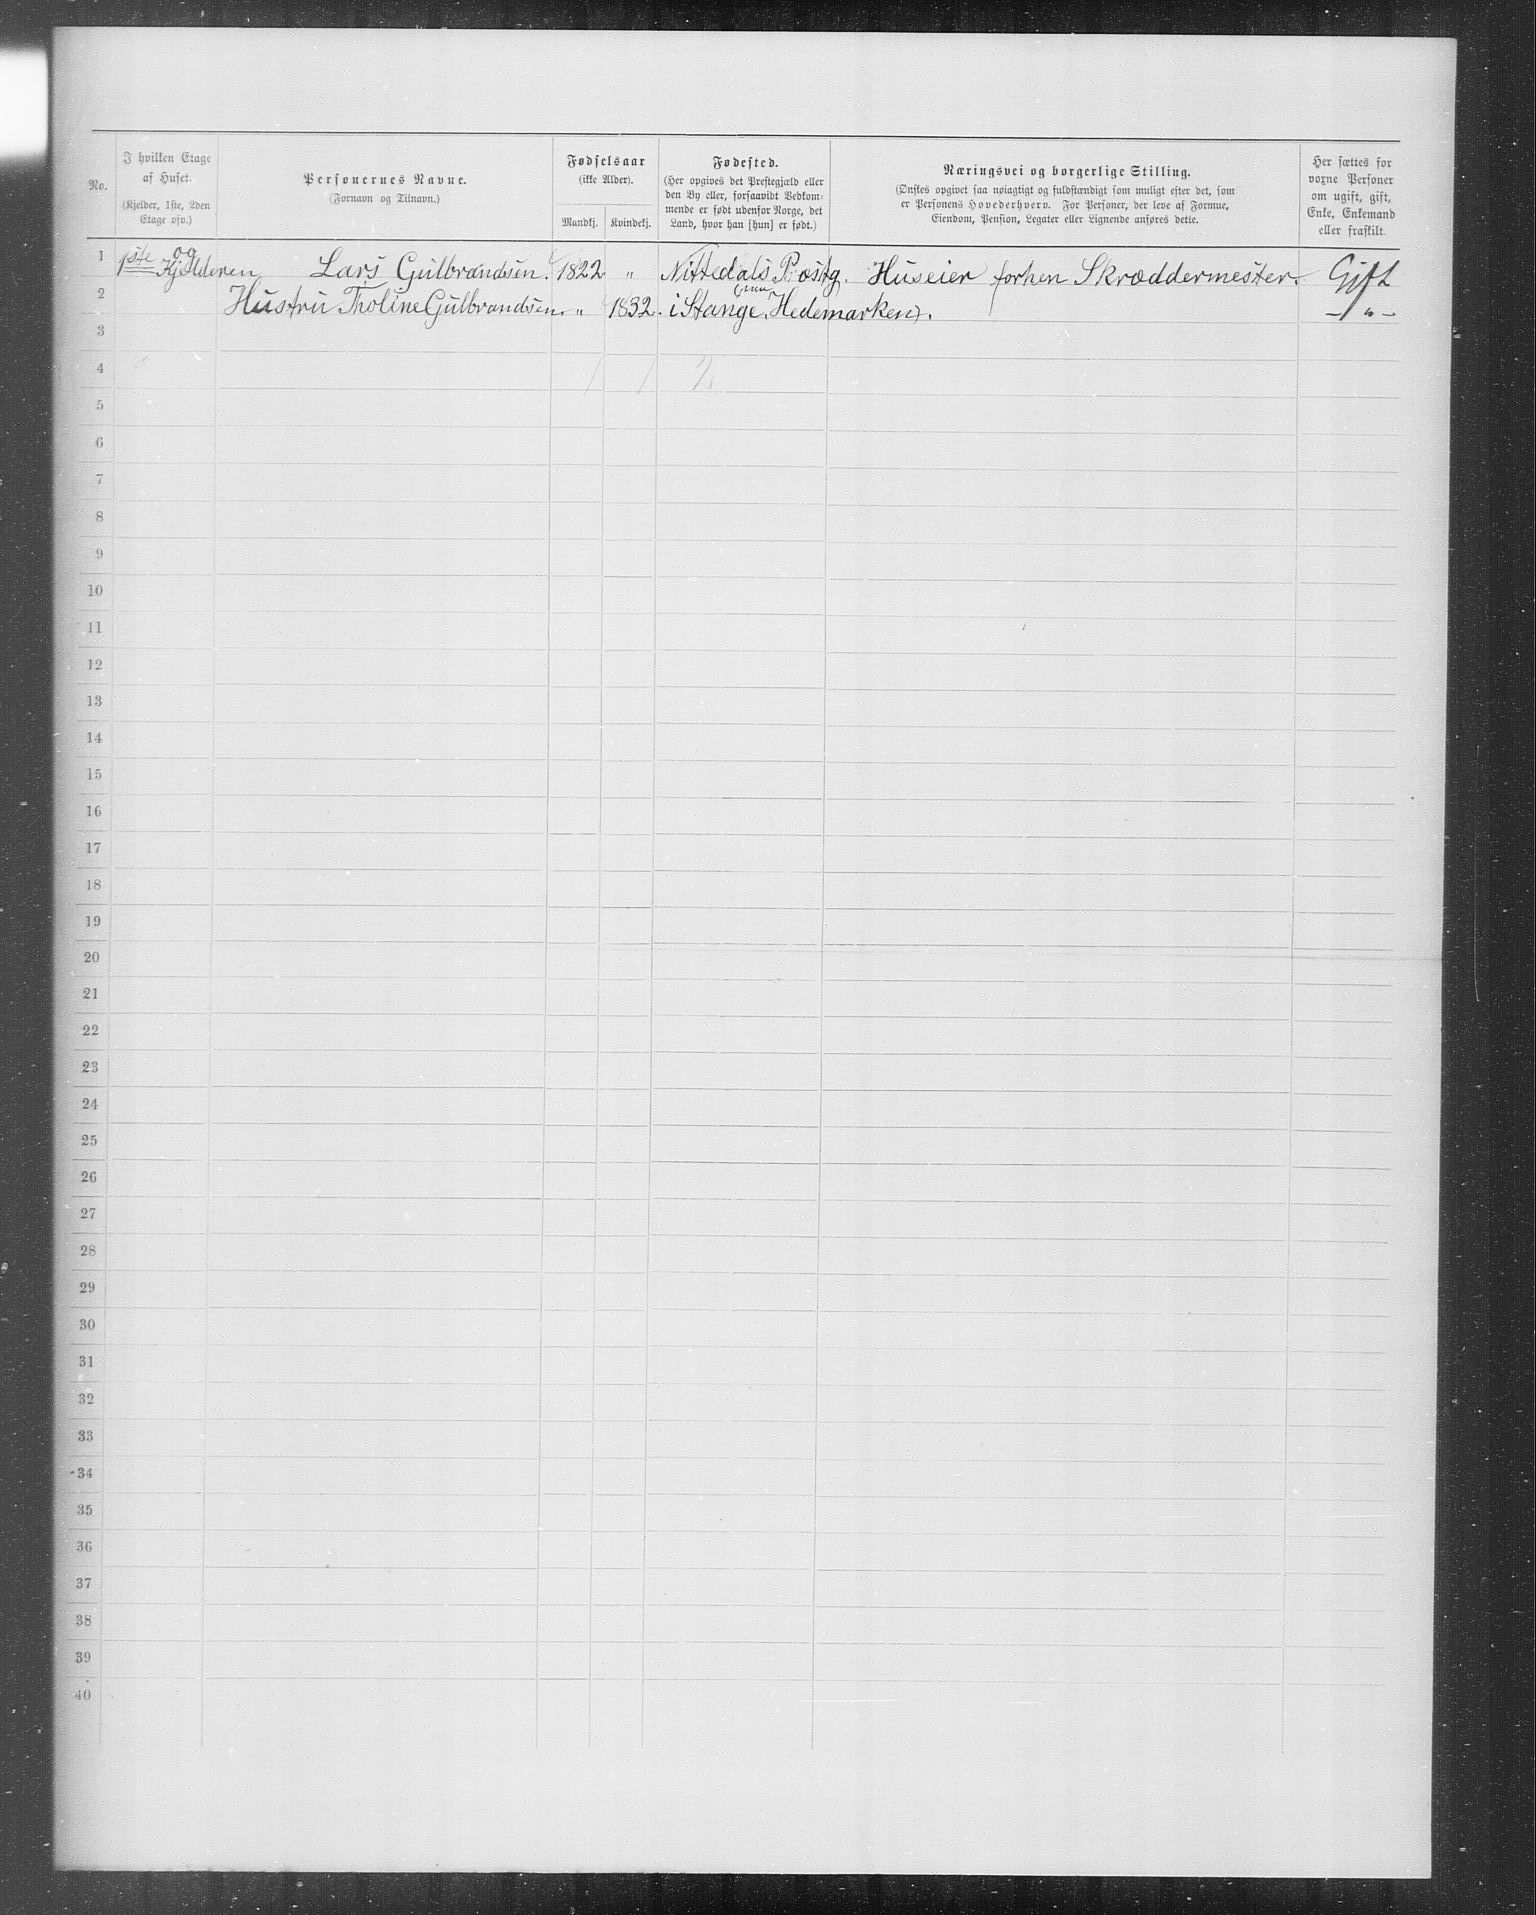 No.
I hvilken Etage
af Huset.
(Kjelder, 1ste, 2den
Etage osv.)
Personernes Navne.
(Fornavn og Tilnavn.)
Fødselsaar
(ikke Alder).
Mandkj. Kvindekj.
Fødested.
(Her opgives det Prestegjæld eller
den By eller, forsaavidt Vedkom-
mende er født udenfor Norge, det
Land, hvor han [hun] er født.)
Næringsvei og borgerlige Stilling.
(Ønskes opgivet saa nøiagtigt og fuldstændigt som muligt efter det, som
er Personens Hovederhverv. For Personer, der leve af Formue,
Eiendom, Pension, Legater eller Lignende anføres dette.
Her sættes for
voxne Personer
om ugift, gift,
Enke, Enkemand
eller fraskilt.
1 1ste og Kjelderen Lars Gulbrandsen. 1822 " Nittedals Prestg. Huseier forhen Skræddermester. Gift
2 Hustru Tholine Gulbrandsen. " 1832. i Stange, Hedemarken). – " –
3
4
5
6
7
8
9
10
11
12
13
14
15
16
17
18
19
20
21
22
23
24
25
26
27
28
29
30
31
32
33
34
35
36
37
38
39
40